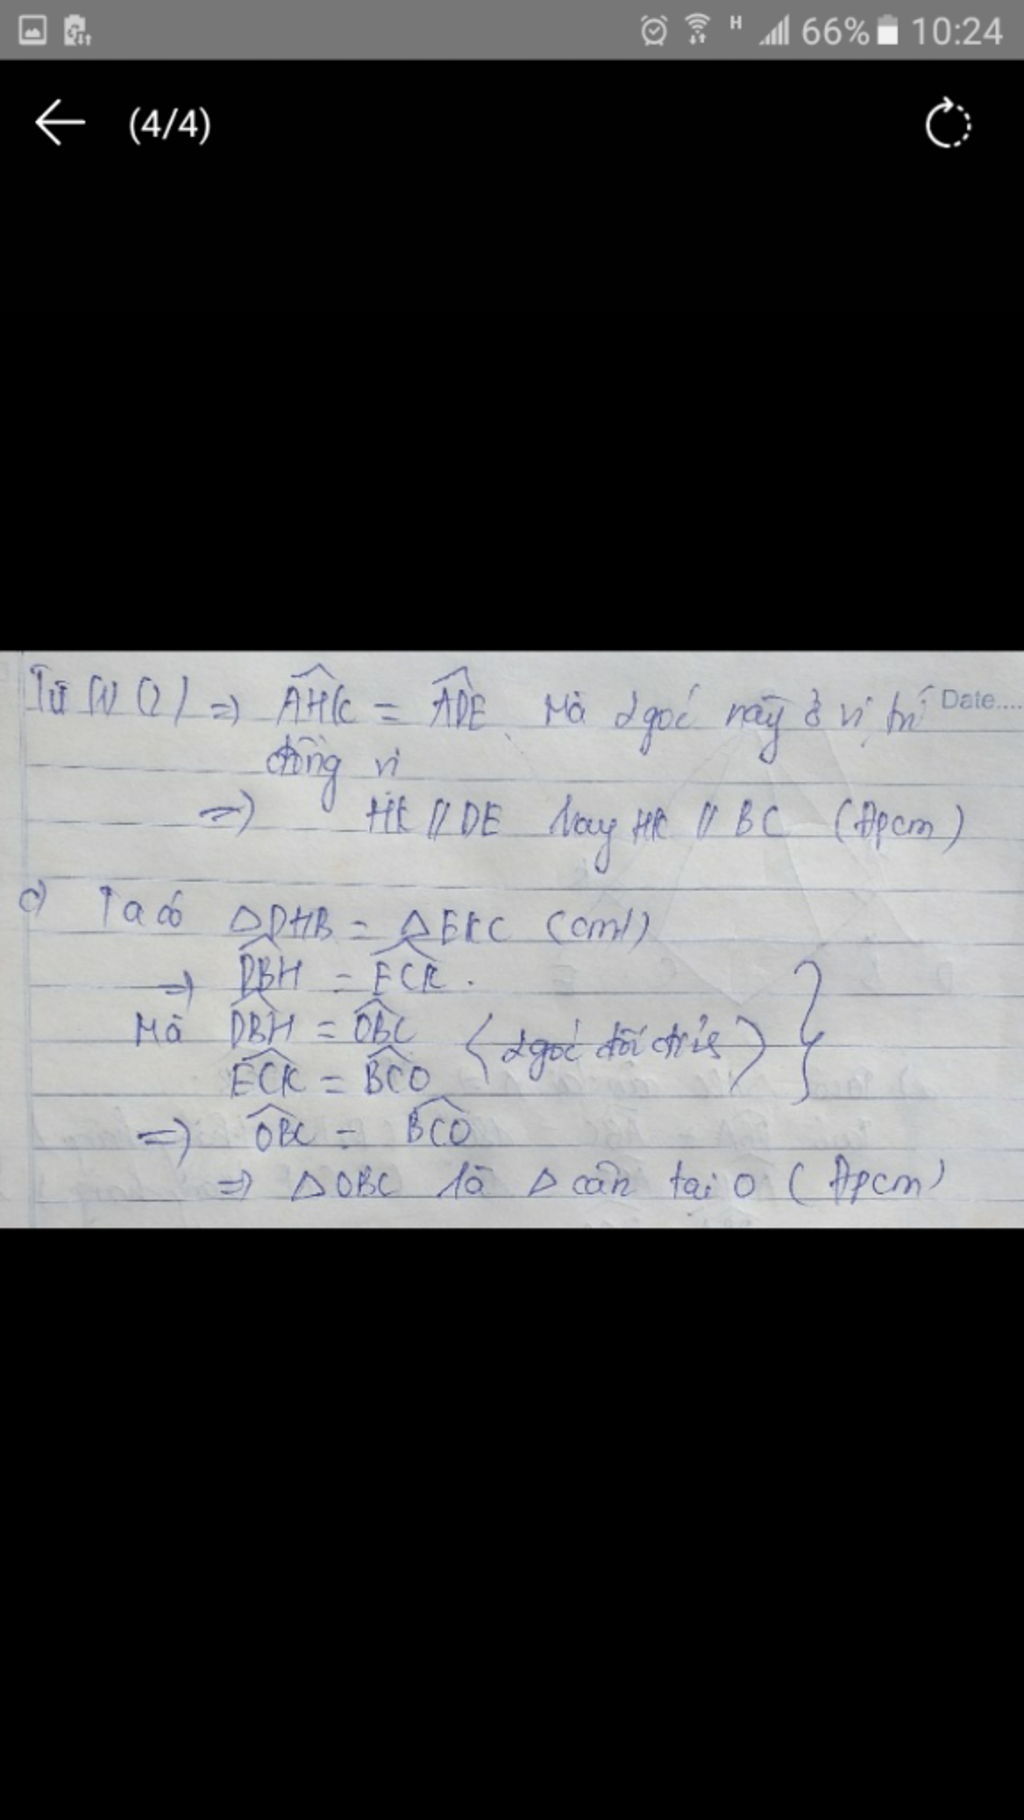 H 66% 10:24
(4/4)
Date....
Từ (1) (2) => AHK = ADE Mà 2 góc này ở vị trí
đồng vị
=> HK // DE hay HK // BC (Đpcm)
c) Ta có △DHB = △EKC (cmt)
=> DBH = ECK.
Mà DBH = OBC
ECK = BCO (2 góc đối đỉnh)
=> OBC = BCO
=> △OBC là △ cân tại O (Đpcm)